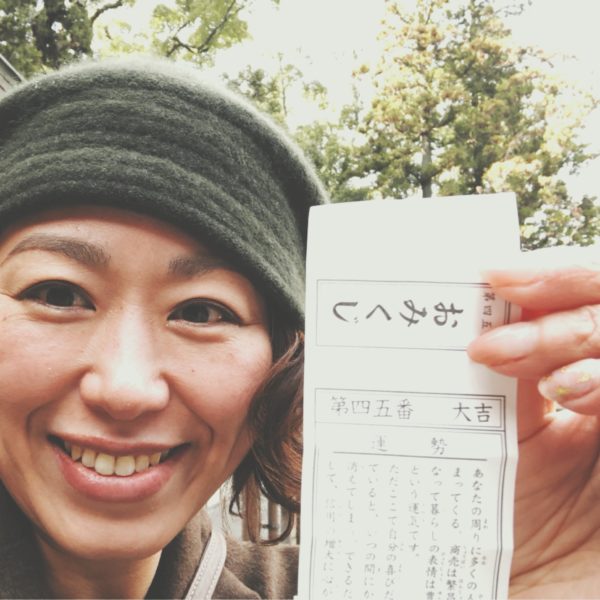 おみくじ
第四五
第四五番 大吉
運勢
あなたの周りに多くの人
まってくる 商売は繁昌
なって暮らしの表情は豊
という運気です。
ただここで自分の喜びだ
ていると、いつの間にか
消えてしまい、できるだ
して、信用の増大に心が